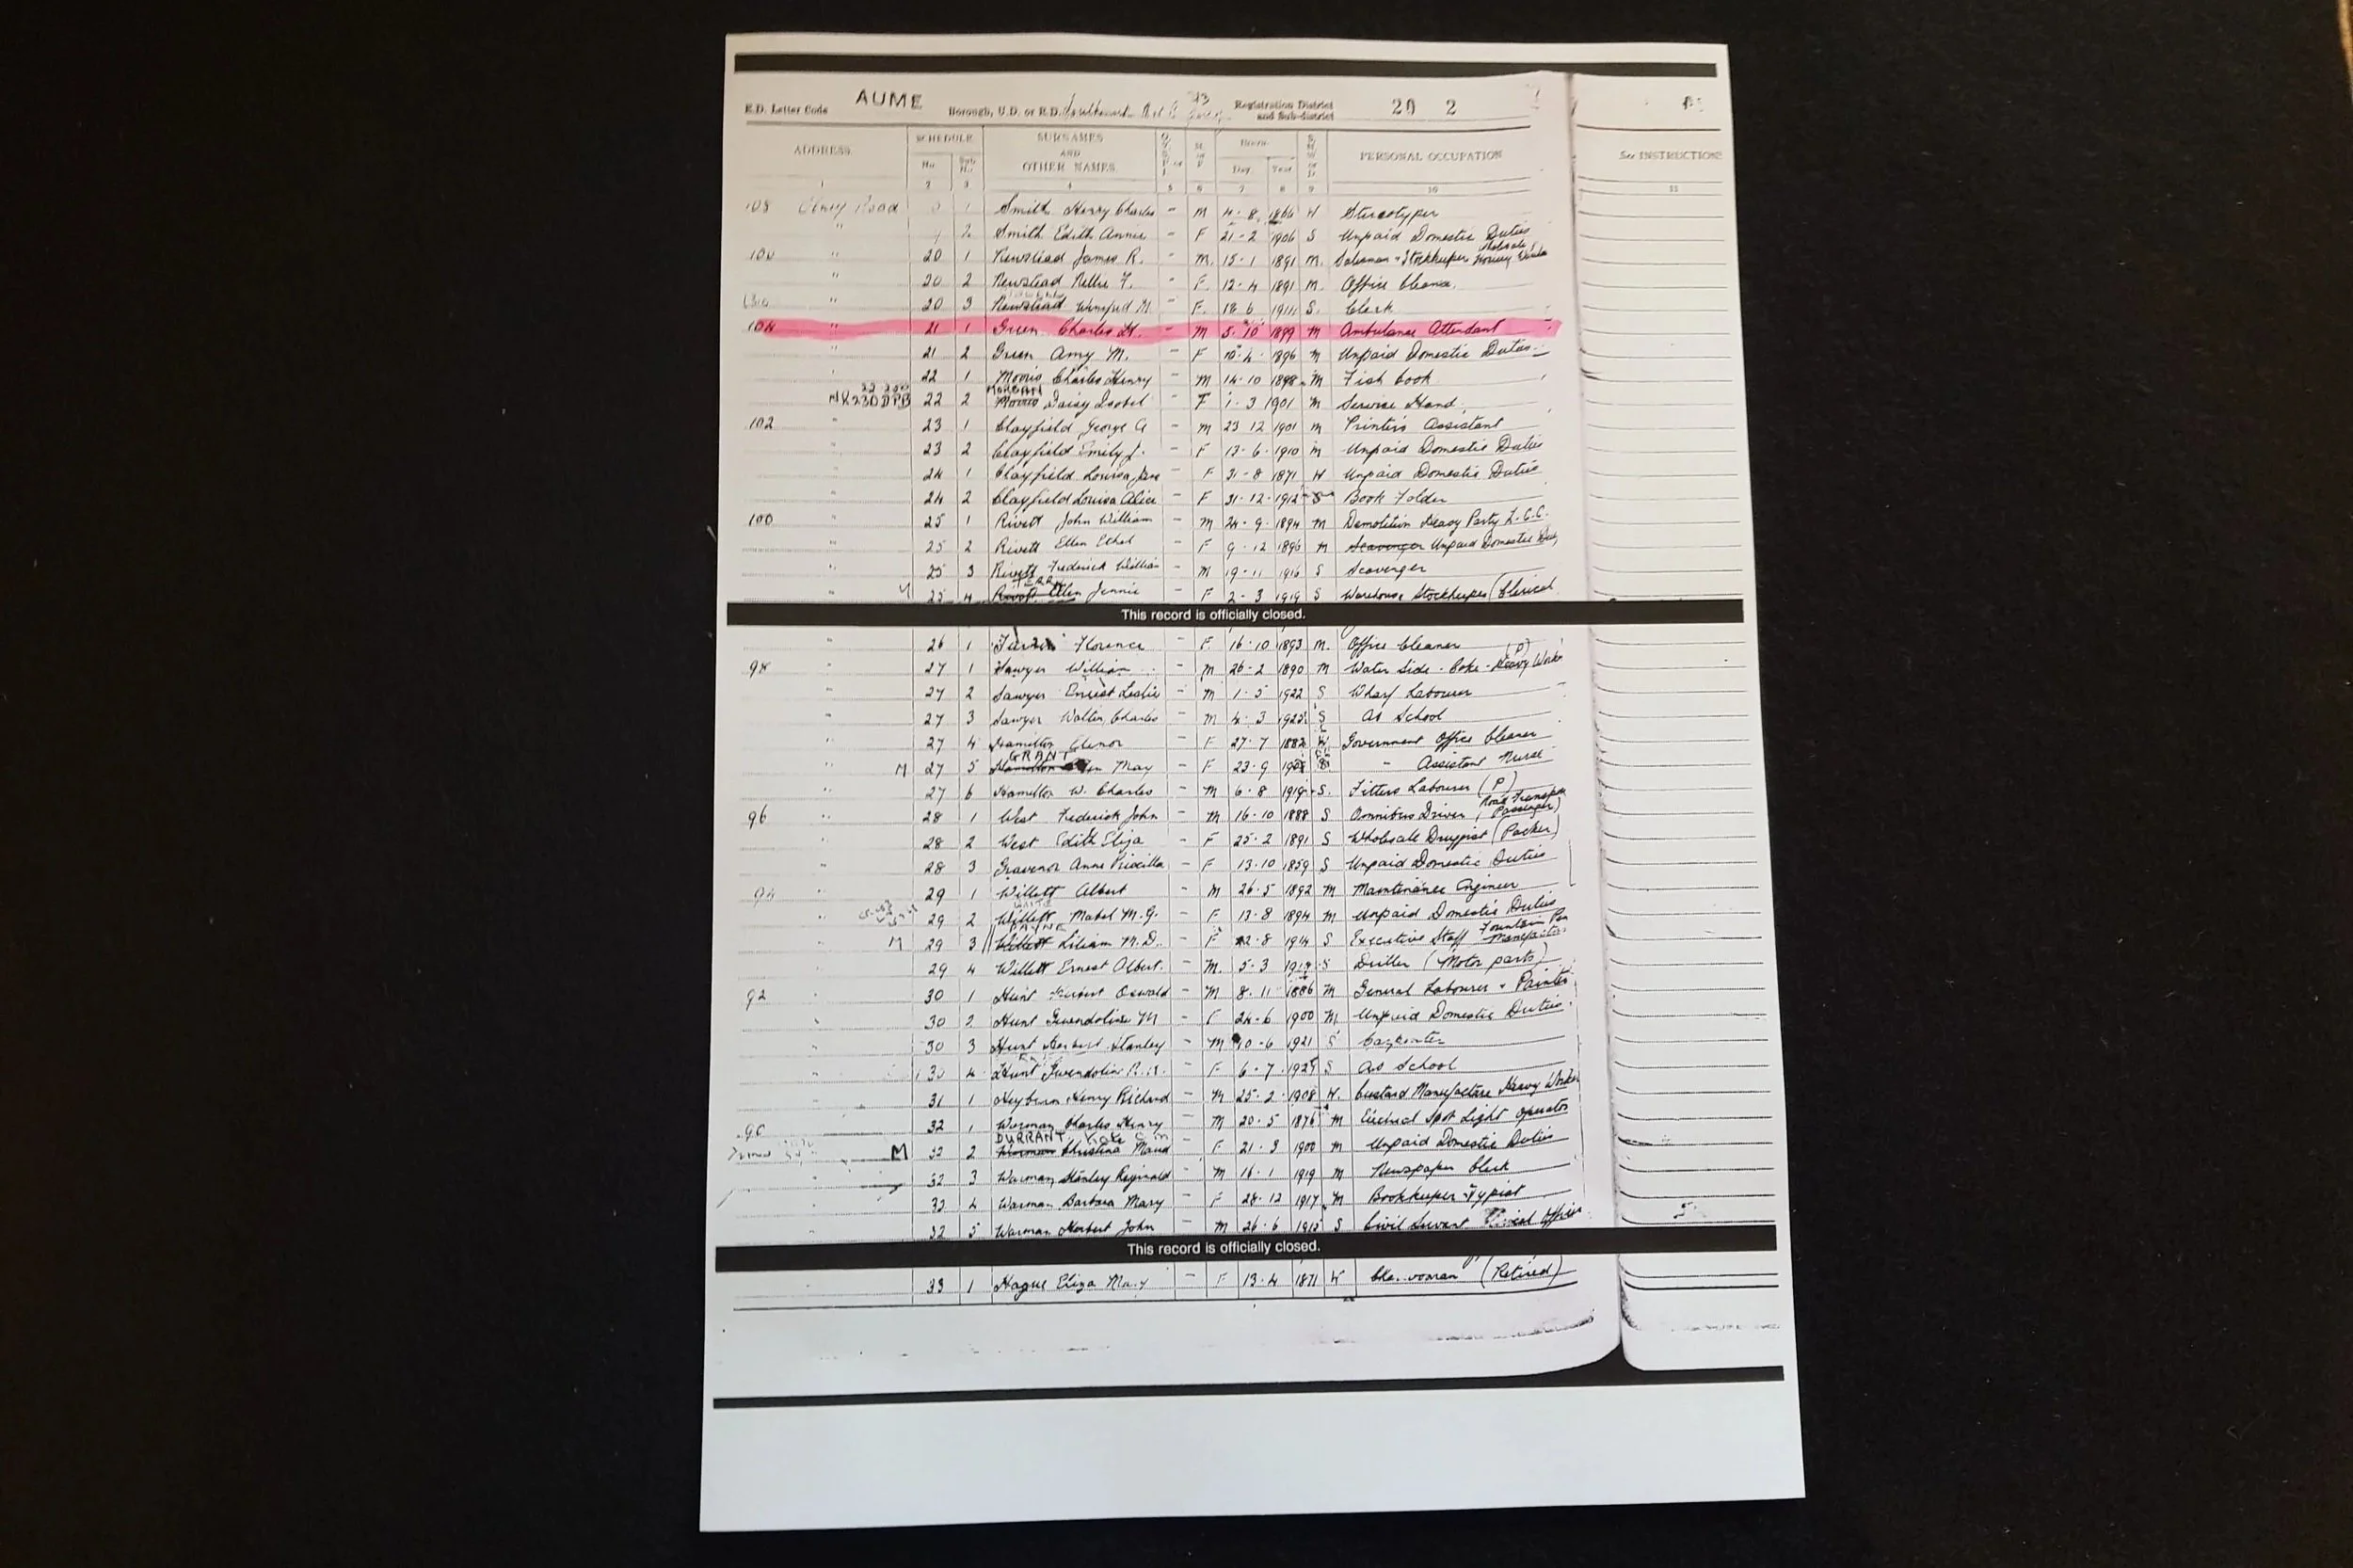 E.D. Letter Code AUME Borough, U.D. or R.D. Registration District and Sub-district 29 2
ADDRESS SCHEDULE No. Sub. No. SURNAMES AND OTHER NAMES M. or F. BORN Day Year PERSONAL OCCUPATION See INSTRUCTIONS
1 2 3 4 5 6 7 8 9 10 11
108 Road 1 Smith Harry Charles - M 4-8 1866 W Stereotyper
" 2 Smith Edith Annie - F 21-2 1906 S Unpaid Domestic Duties
" 20 1 Newstead James R. - M. 15-1 1891 M. Salesman & Stockkeeper
" 20 2 Newstead Nellie F. - F. 12-4 1891 M. Office Cleaner
" 20 3 Newstead Winifred M. - F. 18 6 1911 S. Clerk
104 " 21 1 Green Charles H. - M 5-10 1899 M Ambulance Attendant
" 21 2 Green Amy M. - F 10-4 1896 M Unpaid Domestic Duties
22 1 Morris Charles Henry - M 14-10 1898 M Fish Cook
22 2 Morris Daisy Isobel - F 1-3 1901 M Service Hand
102 " 23 1 Clayfield George A - M 23 12 1901 M Printer's Assistant
" 23 2 Clayfield Emily J. - F 13-6-1910 M Unpaid Domestic Duties
" 24 1 Clayfield Louisa Jane - F 31-8 1871 W Unpaid Domestic Duties
" 24 2 Clayfield Louisa Alice - F 31-12-1912 S Book Folder
100 " 25 1 Rivett John William - M 24-9-1894 M Demolition Heavy Party L.C.C.
" 25 2 Rivett Ellen Ethel - F 9-12 1896 M Scavenger Unpaid Domestic
" 25 3 Rivett Frederick William - M 19-11 1916 S Scavenger
" 25 4 Rivett Ellen Jennie - F 2-3 1919 S Warehouse Stockkeeper (Clerical
This record is officially closed.
" 26 1 Florence - F 16-10 1893 M. Office Cleaner (P)
98 " 27 1 Sawyer William - M 26-2 1890 M Water Side - Coke - Heavy Worker
" 27 2 Sawyer Ernest Leslie - M 1-5 1922 S Wharf Labourer
" 27 3 Sawyer Walter Charles - M 4-3 S At School
" 27 4 Hamilton Elenor - F 27-7 1882 W Government Office Cleaner
GRANT
" M 27 5 Hamilton May - F 23-9 - Assistant Nurse
" 27 6 Hamilton W. Charles - M 6-8 1919 S. Fitters Labourer (P)
96 " 28 1 West Frederick John - M 16-10 1888 S Omnibus Driver (Road Transport Passenger)
" 28 2 West Edith Eliza - F 25-2 1891 S Wholesale Druggist (Packer)
" 28 3 Gravenor Anne Priscilla - F 13-10 1859 S Unpaid Domestic Duties
94 " 29 1 Willett Albert - M 26-5 1892 M Maintenance Engineer
" 29 2 Willett Mabel M.G. - F 13-8 1894 M Unpaid Domestic Duties
M 29 3 Willett Liliam M.D. - F 12-8 1914 S Executive Staff Fountain Pen
29 4 Willett Ernest Albert. - M. 5-3 S Driller (Motor parts)
92 " 30 1 Hunt Herbert Oswald - M 8-11 1886 M General Labourer & Painter
" 30 2 Hunt Gwendoline M - F 24-6 1900 M Unpaid Domestic Duties
" 30 3 Hunt Herbert Stanley - M 10-6 1921 S Carpenter
" 30 4 Hunt Gwendoline - F 6-7 S At School
" 31 1 Henry Richard - M 25-2-1908 Custard Manufacture Heavy Worker
90 " 32 1 Warman Charles Henry - M 20-5 1876 M Electrical Spot Light Operator
DURRANT
M 32 2 Warman Christina Maud F 21-3 1900 M Unpaid Domestic Duties
32 3 Warman Stanley Reginald M 16-1 1919 M Newspaper Clerk
32 4 Warman Barbara Mary - F 28-12 1917 M Bookkeeper Typist
" 32 5 Warman Herbert John M 26-6 S Civil Servant
This record is officially closed.
33 1 Hague Eliza Mary - F 13-4 1871 W (Retired)